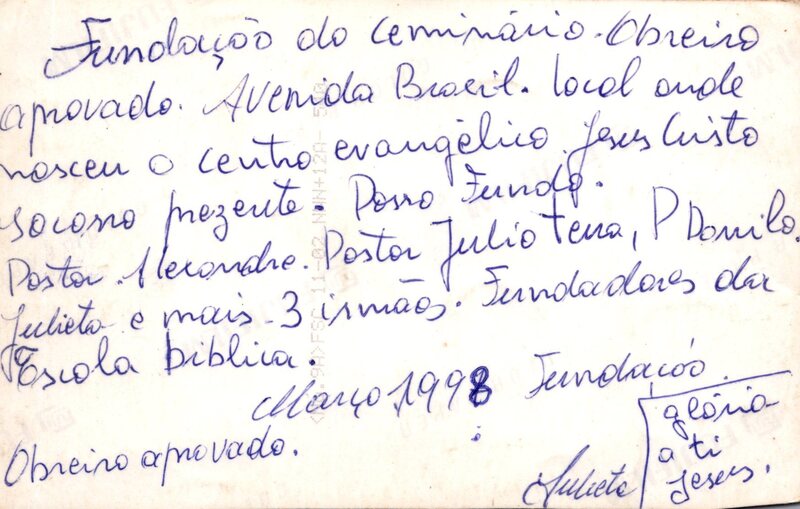 Fundação do Ceminário. Obreiro
aprovado. Avenida Brasil. local onde
nasceu o centro evangélico Jesus Cristo
socorro prezente. Passo Fundo.
Pastor Alexandre. Pastor Julio Terra, P Danilo.
Julieta e mais 3 irmãos. Fundadores da
Escola bíblica.
Março, 1998 Fundação.
Obreiro aprovado.
Julieta
glória
a ti
Jesus.